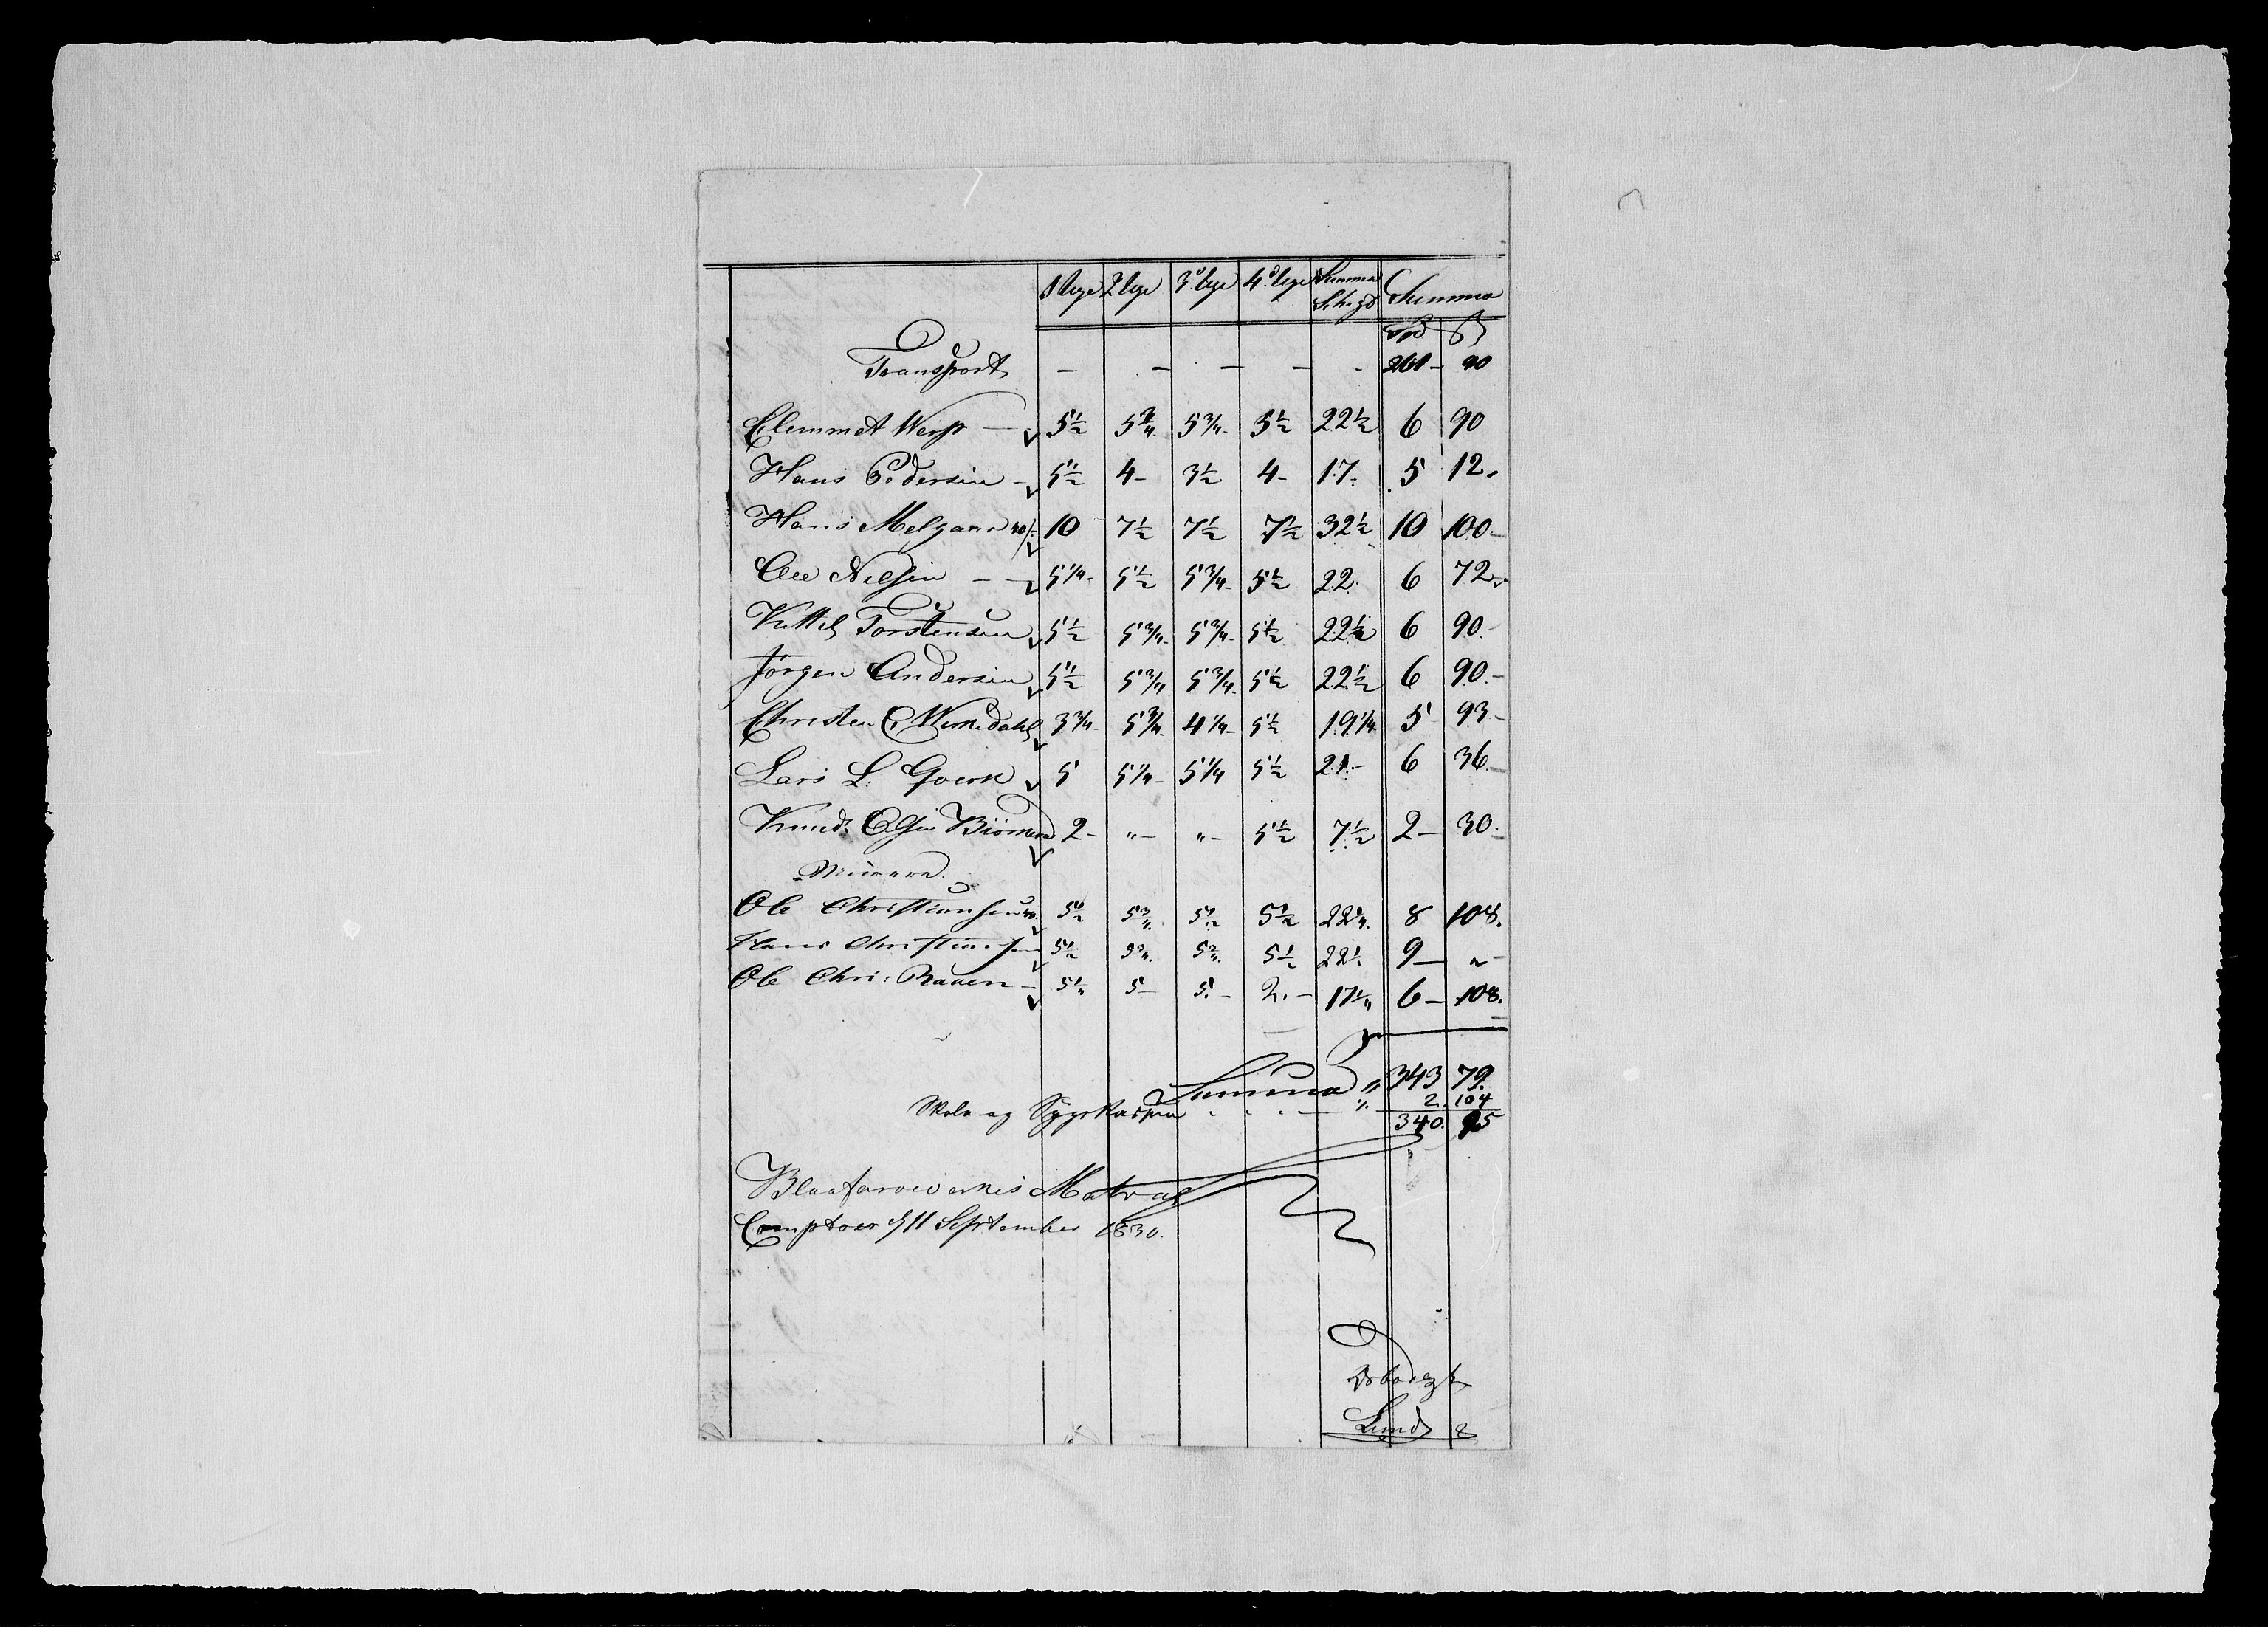 1 Uge 2 Uge 3.d Uge 4.d Uge Summa Summa
Spd ß
Transport — — — — - 261 - 90
Clemmet Werp — 5½ 5¾ 5¾ 5½ 22½ 6 90
Hans Pedersen - 5½ 4 - 3½ 4 - 17. 5 12.
Hans Melzar 10 7½ 7½ 7½ 32½ 10 100 -
Ole Nilsen - - 5¼ - 5½ 5¾ - 5½ 22. 6 72
Kittil Torstensen 5½ 5¾ - 5¾ - 5½ 22½ 6 90. -
Jörgen Andersen 5½ 5¾ 5¾ - 5½ 22½ 6 90. -
Christen C Werkedahl 3¾ - 5¾ - 4¼ - 5½ 19¼ 5 93 -
Lars L. Gverk 5 5¼ - 5¼ 5½ 21 - 6 36. -
Knud Olsen Biörnerud 2 - " - " - 5½ 7½ 2 - 30. -
Murere.
Ole Christiansen 5½ 5¾. 5½ 5½ 22¼. 8 108.
Hans Christiansen 5½ 5¾. 5¾. 5½ 22½ 9 — " -
Ole Chri: Raaen - 5¼ 5 - 5. - 2. - 17¼ 6 - 108.
Summa " 343 79.
Skole og Sygekassen . . . — " 2. 104
340. 95
Blaafarveverkets Material
Comptoir d 11 September 1830.
Lund